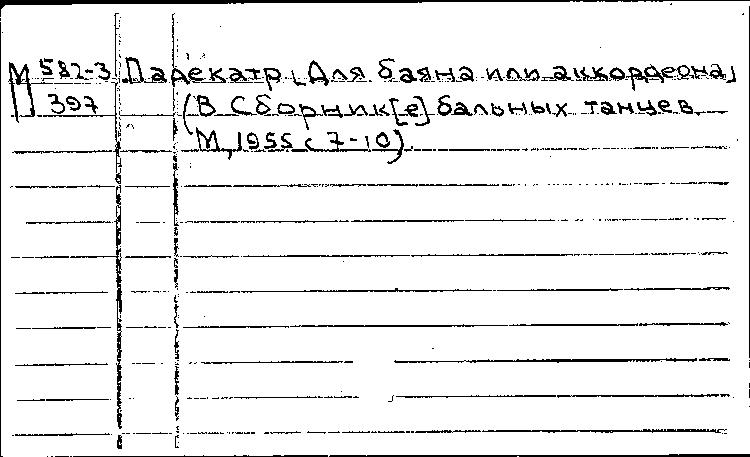 М 582-3 Падекатр [Для баяна или аккордеона]
397 (В Сборник[е] бальных танцев.
М, 1955 с 7-10)